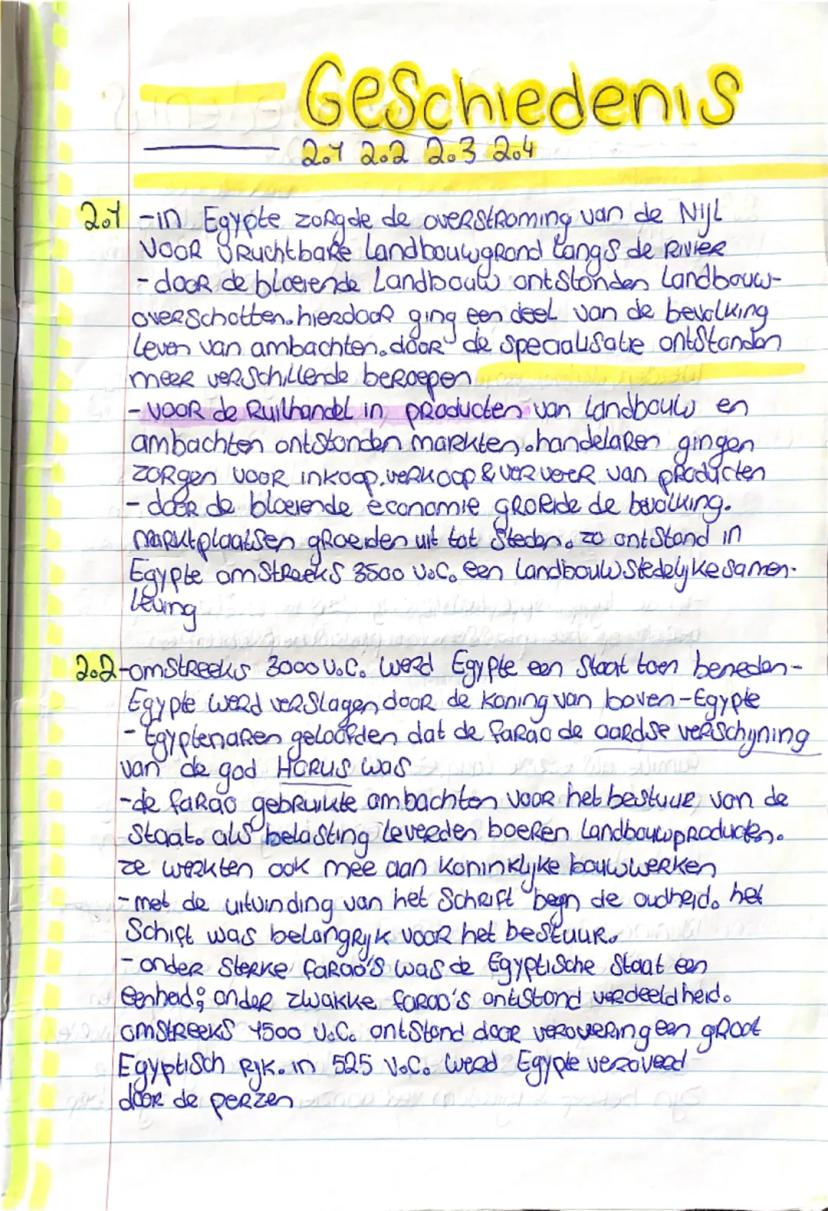 Geschiedenis
2.1 2.2 2.3 2.4
2.1 -in Egypte zorgde de overstroming van de Nijl
voor vruchtbare landbouwgrond langs de rivier
-door de bloeiende landbouw ontstonden landbouw-
overschotten. hierdoor ging een deel van de bevolking
leven van ambachten. door de specialisatie ontstonden
meer verschillende beroepen
-voor de ruilhandel in producten van landbouw en
ambachten ontstonden markten. handelaren gingen
zorgen voor inkoop, verkoop & vervoer van producten
-door de bloeiende economie groeide de bevolking.
marktplaatsen groeiden uit tot steden. zo ontstond in
Egypte omstreeks 3500 v.C. een landbouwstedelijke samen-
leving
2.2 -omstreeks 3000 v.C. werd Egypte een staat toen beneden-
Egypte werd verslagen door de koning van boven-Egypte
- Egyptenaren geloofden dat de farao de aardse verschijning
van de god HORUS was
-de farao gebruikte ambachten voor het bestuur van de
staat. als belasting leverden boeren landbouwproducten.
ze werkten ook mee aan koninklijke bouwwerken
-met de uitvinding van het schrift begn de oudheid. het
Schift was belangrijk voor het bestuur.
-onder sterke farao's was de Egyptische staat een
eenheid; onder zwakke farao's ontstond verdeeldheid.
omstreeks 1500 v.C. ontstond door verovering een groot
Egyptisch rijk. in 525 v.C. werd Egypte veroverd
door de perzen